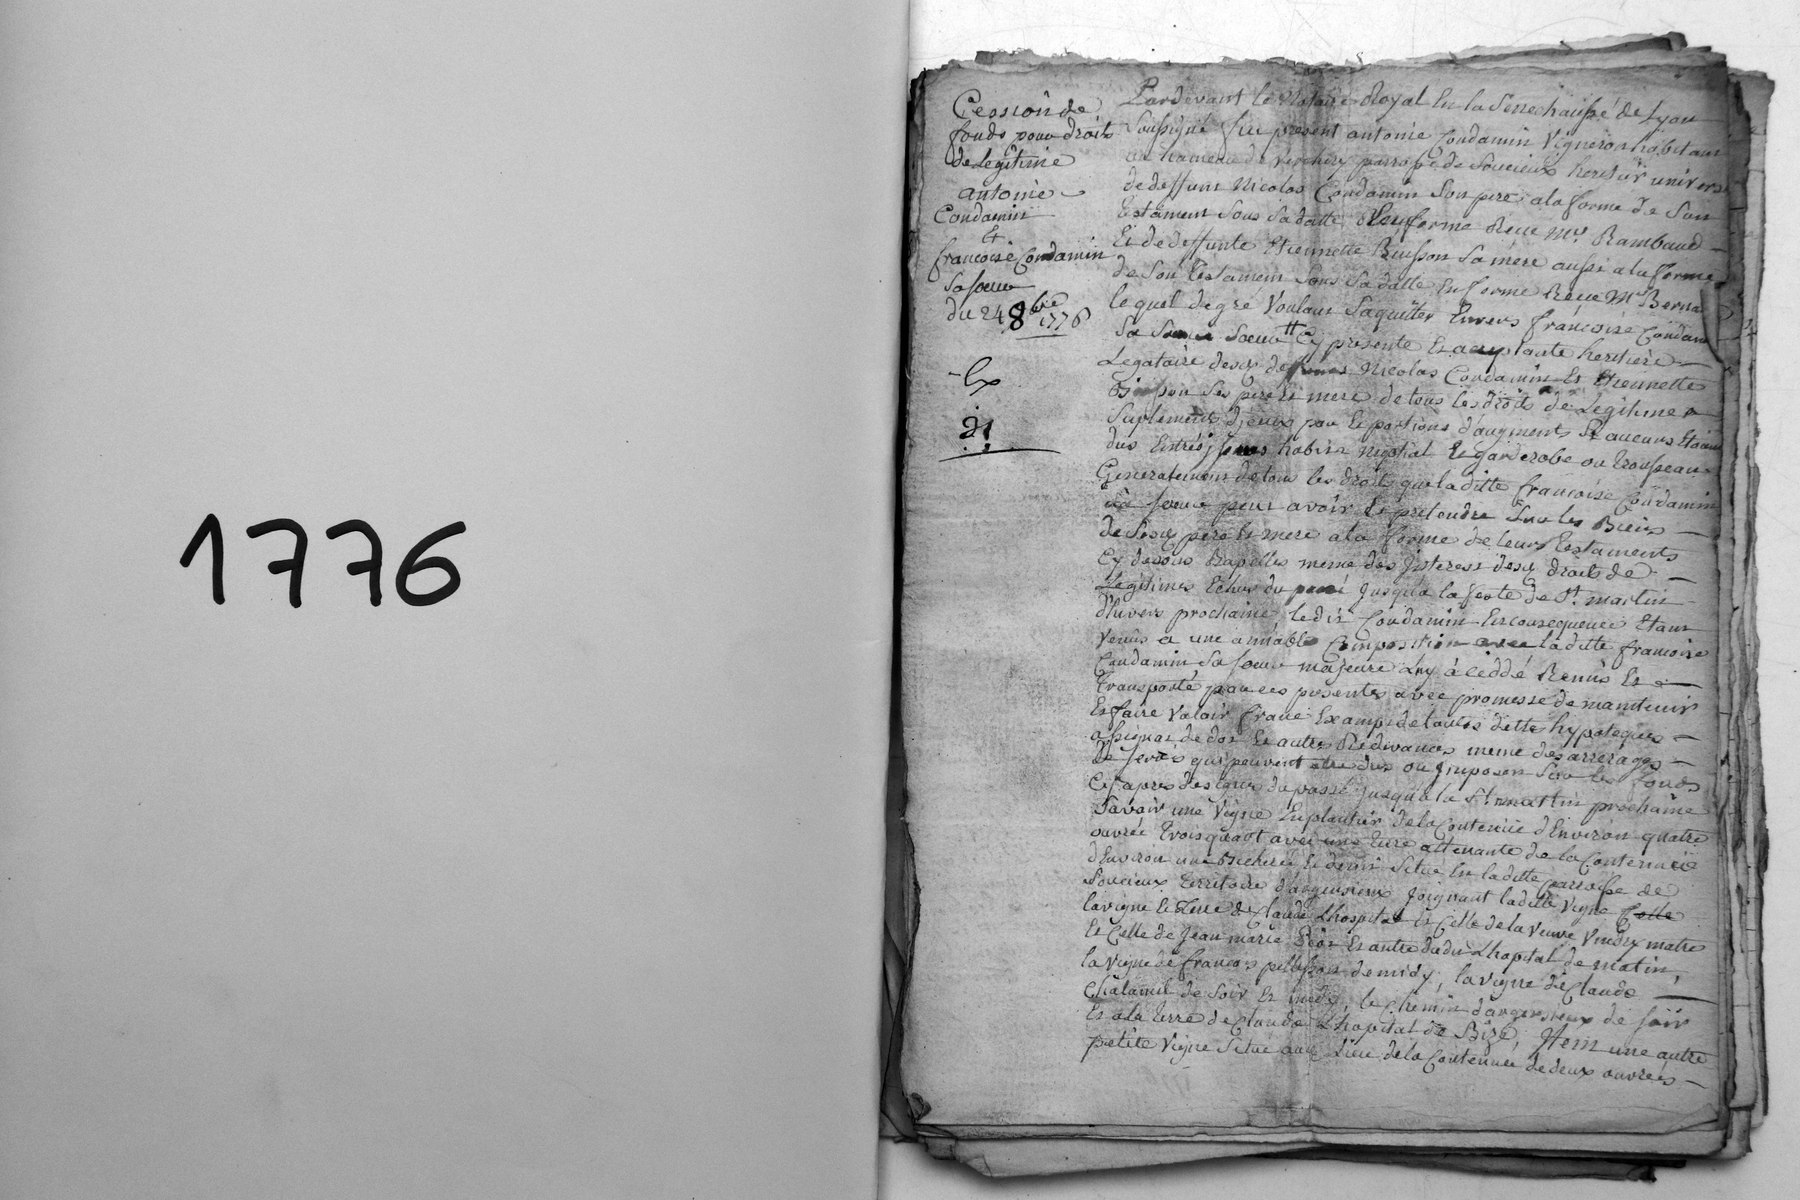 1776
Cession de
fonds pour droits
de Legitime
antoine
Condamin
Et
françoise Condamin
Sa soeur
du 24 8bre 1776
Pardevant le Notaire Royal En la Senechaussé de Lyon
Soussigné fut present antoine Condamin Vigneron habitant
au hameau de Verchery parroisse de Soucieux heritier univers
de deffunt Nicolas Condamin Son pere a la forme de Son
testament Sous Sa datte En forme Reçue Me Rambaud
Et de deffunte Etiennette Buisson Sa mere aussi a la forme
de Son testament Sous Sa datte En forme Reçue Me Berna
lequel de gré Voulant Saquitter Envers françoise Condam
Sa Soeur Cy presente Et acceptante heritiere
Legataire desd deffunts Nicolas Condamin Et Etiennette
Buisson Ses pere Et mere de tous les droits de Legitime
Suplements d'jceux part Et portions d'augments
dus habits nuptial Et garderobe ou trousseau
Generalement de tous les droits que laditte françoise Condamin
sa soeur peut avoir Et pretendre Sur les Biens
de Sesd pere Et mere a la forme de leurs testaments
Cy dessus Rapellés meme des jnterest desd droits de
Legitimes Echus du passé jusqu'a la feste de St martin
d'hivers prochaine ledit Condamin En consequence Etant
Venus a une amiable Composition avec laditte françoise
Condamin Sa soeur majeure Luy à ceddé Remis Et
transporté par ces presentes avec promesse de maintenir
Et faire Valoir franc Exampt de toutes dette hypoteques
de dot Et autres Redevances meme des arrerages
de Servis qui peuvent etre dus ou jmposés Sur les fonds
Cy apres designés du passé jusqu'a la St martin prochaine
Savoir une Vigne En plantier de la Contenüe d'Environ quatre
ouvrée trois quart avec une terre attenante de la Contenuee
d'Environ une Bicherée Et demi Situé En laditte parroisse de
Soucieux territoire d'argensieux joignant laditte Vigne Celle
la vigne Et terre de Claude Lhospital Et Celle de la Veuve
Et Celle de Jean marie Et autre dudit Lhopital de matin,
la Vigne de françois pelisson de midy, la Vigne de Claude
Chalamel de Soir Et midy, le Chemin d'argensieux de soir
Et a la terre de Claude Lhopital de Bize, Item une autre
petite Vigne Situé aud Lieu de la Contenuee de deux ouvrées